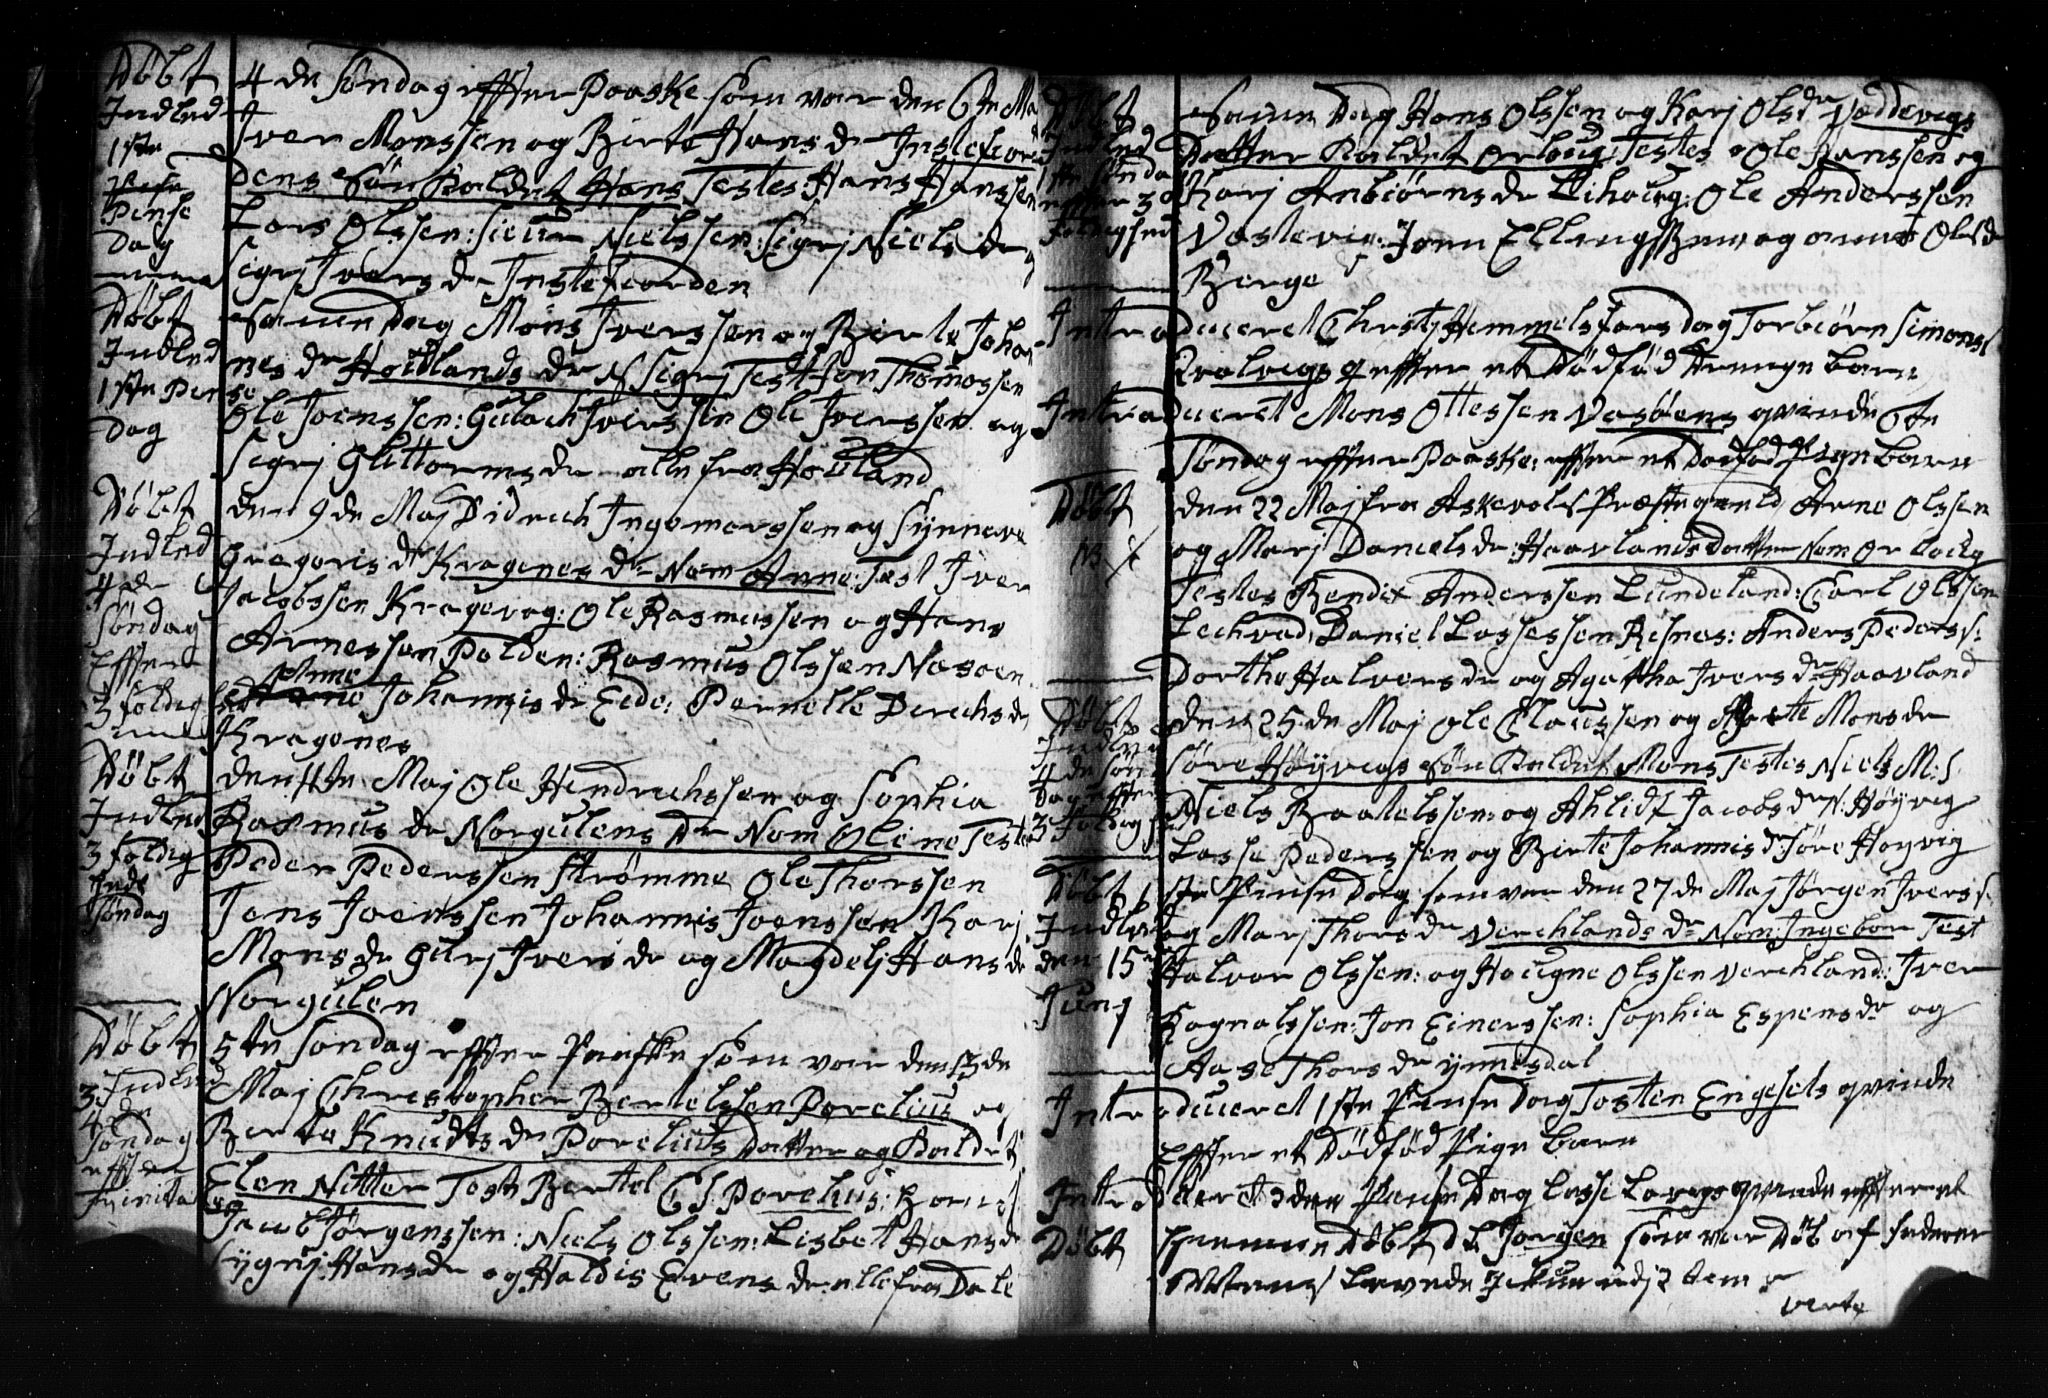 Døbt
Indled
1ste
Pinse
Dag
4de Søndag effter Paaske som var den 6te Ma
Iver Monssen og Birte Hans dr Instefior
dens Søn Kaldet Hans Testes Hans Hanssen
Lars Olssen: Siur Nielssen: Sigrj Niels dr og
Sigrj Ivers dr Instefiorden
Døbt
Indled
1ste Pinse
Dag
Samme Dag Mons Iverssen og Birte Johan
nes dr Høÿlands dr N Sigrj Test Jon Thomassen
Ole Joenssen: Gulach Iverssen Ole Iverssen og
Sigrj Guttorms dr alle fra Høÿland
Døbt
Indled
4de
Søndag
Effter
3foldigh
den 9de Maj Didrich Ingemarssen og Sÿnneve
Gregoris dr Kragenes dr Nom Anne: Test Iver
Jacobssen Kragevog: Ole Rasmussen og Hans
Arnessen Polden: Rasmus Olssen Nosoen
Anne Johannis dr Eide: Pernelle Dirichs dr
Kragenes
Døbt
Indled
3foldig
heds
Søndag
den 11te Maj Ole Hendrichssen og Sophia
Rasmus dr Norgulens dr Nom Oline Teste
Peder Pederssen Strømme Ole Thorssen
Jens Joenssen Johannis Joenssen Karj
Mons dr Gurj Ivers dr og Magdelj Hans dr
Norgulen
Døbt
Indled
4de
Søndag
effter
Trinitatis
5te Søndag effter Paaske som var den 13de
Maj Christopher Bertelssen Porelius og
Birte Knudts dr Porelius Datter og Kaldet
Elen Nitter Test Bertel CS Porelius:
Jacob Jørgenssen: Niels Olssen: Lisbet Hans dr
Sÿgnj Hans dr og Haldis Evens dr alle fra Dale
Døbt
Indled
1ste Sønda
effter 3
foldighed
Samme Dag Hans Olssen og Karj Ols dr Vaddevigs
Datter Kaldet Orloug Testes Ole Hanssen og
Karj Anbiørns dr Lihoug: Ole Anderssen
Vastevig: Joen Ellingssen og anne Ols dr
Berge
Introduceret Christj Himmelsfars Dag Torbiørn Simons
Qvalvigs q effter et Dødfød Drenge barn
Introduceret Mons Ottessen Vasøens qvinde 6te
Søndag effter Paaske: effter et Dødfød Pige barn
Døbt
NB
den 22 Maj fra Askevols Præstegield Arne Olssen
og Marj Daniels dr Haavlands Datter Nom Orloug
Testes Bendix Anderssen Lundeland: Carl Olssen
Lechvad, Daniel Lassessen Risnes: Anders Pederss:
Dorthe Halvers dr og Agatha Ivers dr Haavland
Døbt
Indled
4de Søn
Dag effter
3foldighed
den 25de Maj Ole Claussen og Marte Mons dr
Søre Høÿvigs Søn Kaldet Mons Testes Niels M:S
Niels Bartelssen: og Ahlidt Jacobs dr N: Høÿvig
Lasse Pederssen og Birte Johannis dr Søre Høÿvig
Døbt
Indled
den 15
Junj
1ste Pinse Dag som var den 27de Maj Jørgen Iverss.
og Marj Thors dr Verchlands dr Nom: Ingebor Test
Halvor Olssen: og Hougne Olssen Verchland: Iver
Rognalssen: Jon Einerssen: Sophia Espens dr og
Aase Thors dr Ÿnnesdal
Introduceret 1ste Pinse Dag Tosten Engesets qvinde
Effter et Dødfød Pige barn
Introduceret 3den Pinse Dag Lasse qvinde effter et
Døbt
Døbt Jørgen som var Døb af
Levede
verte